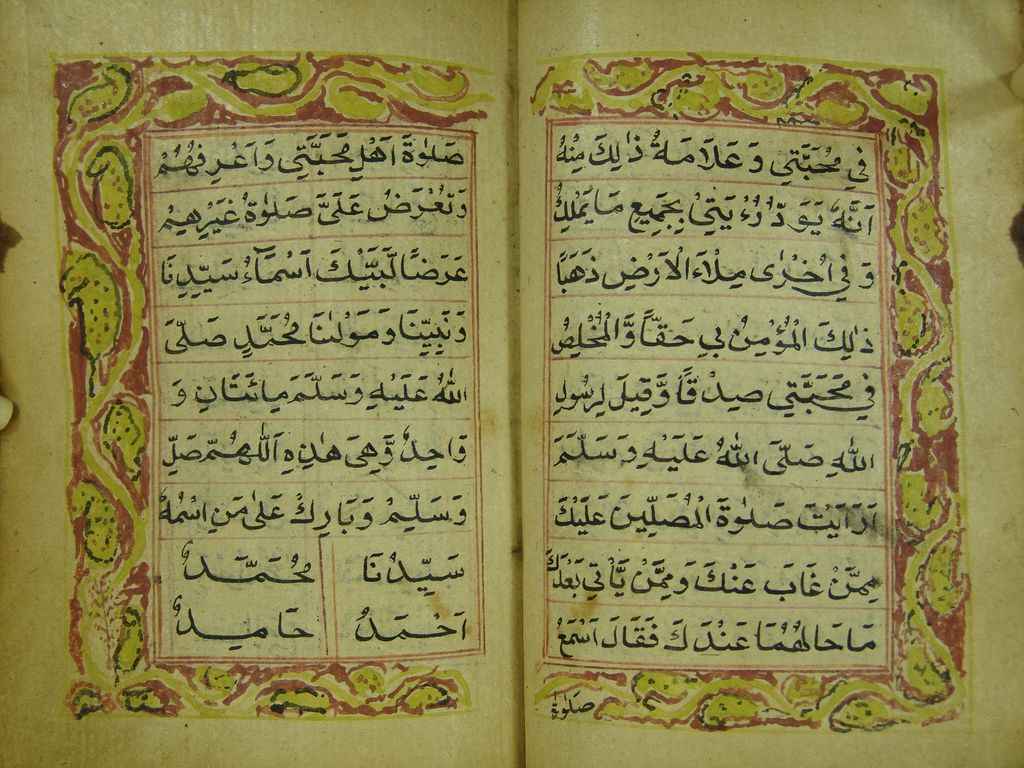 فِي مُحَبَّتِي وَعَلَامَةُ ذٰلِكَ مِنْهُ
اَنَّهُ يَوَدُّ رُءْيَتِيْ بِجَمِيعِ مَا يَمْلِكُ
وَفِي اُخْرٰى مِلْاَءَ الْاَرْضِ ذَهَبًا
ذٰلِكَ الْمُؤْمِنُ بِي حَقًّا وَّالْمُخْلِصُ
فِي مَحَبَّتِي صِدْقًا وَّقِيلَ لِرَسُولِ
اللّٰهِ صَلَّى اللّٰهُ عَلَيْهِ وَسَلَّمَ
اَرَاَيْتَ صَلٰوةَ الْمُصَلِّينَ عَلَيْكَ
مِمَّنْ غَابَ عَنْكَ وَمِمَّنْ يَّاْتِي بَعْدَكَ
مَا حَالُهُمَا عِنْدَكَ فَقَالَ اَسْمَعُ
صَلٰوةَ
صَلٰوةَ اَهْلِ مُحَبَّتِي وَاَعْرِفُهُمْ
وَتُعْرَضُ عَلَيَّ صَلٰوةُ غَيْرِهِمْ
عَرَضًا لَّبَّيْكَ اَسْمَآءُ سَيِّدِنَا
وَنَبِيِّنَا وَمَوْلٰنَا مُحَمَّدٍ صَلَّى
اللّٰهُ عَلَيْهِ وَسَلَّمَ مِائَتَانِ وَ
وَاحِدٌ وَّهِيَ هٰذِهِ اَللّٰهُمَّ صَلِّ
وَسَلِّمْ وَبَارِكْ عَلٰى مَنِ اسْمُهُ
سَيِّدُنَا مُحَمَّدٌ
اَحْمَدُ حَامِدٌ